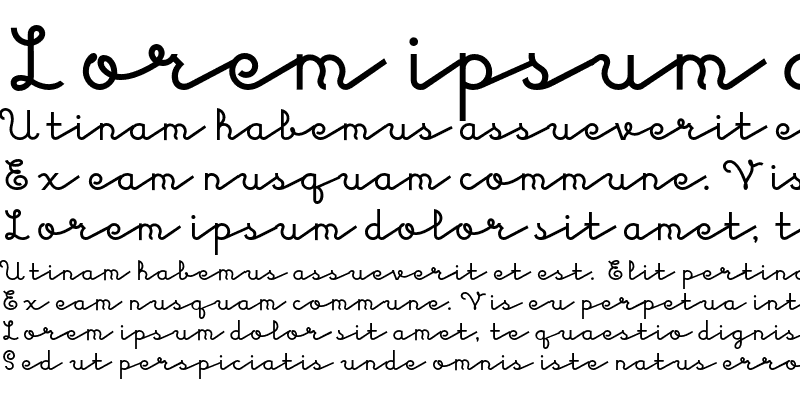 Lorem ipsum
Utinam habemus assueverit e
Ex eam nusquam commune. Vis
Lorem ipsum dolor sit amet, t
Utinam habemus assueverit et est. Elit pertina
Ex eam nusquam commune. Vis eu perpetua int
Lorem ipsum dolor sit amet, te quaestio dignis
Sed ut perspiciatis unde omnis iste natus erro